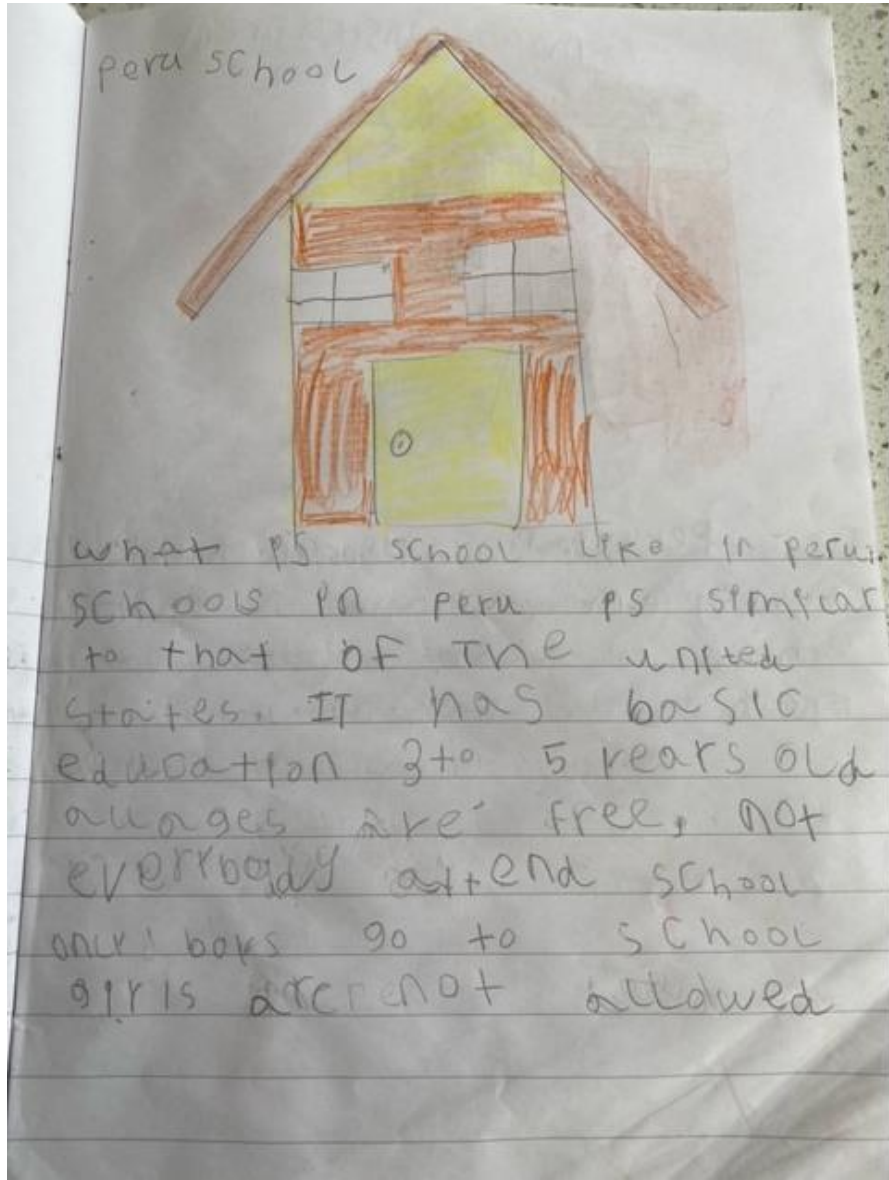 peru school
what is school like in peru.
schools in peru is similar
to that of The united
states. IT has basic
education 3 to 5 years old
all ages are free, not
everybody attend school
only boys go to school
girls are not allowed